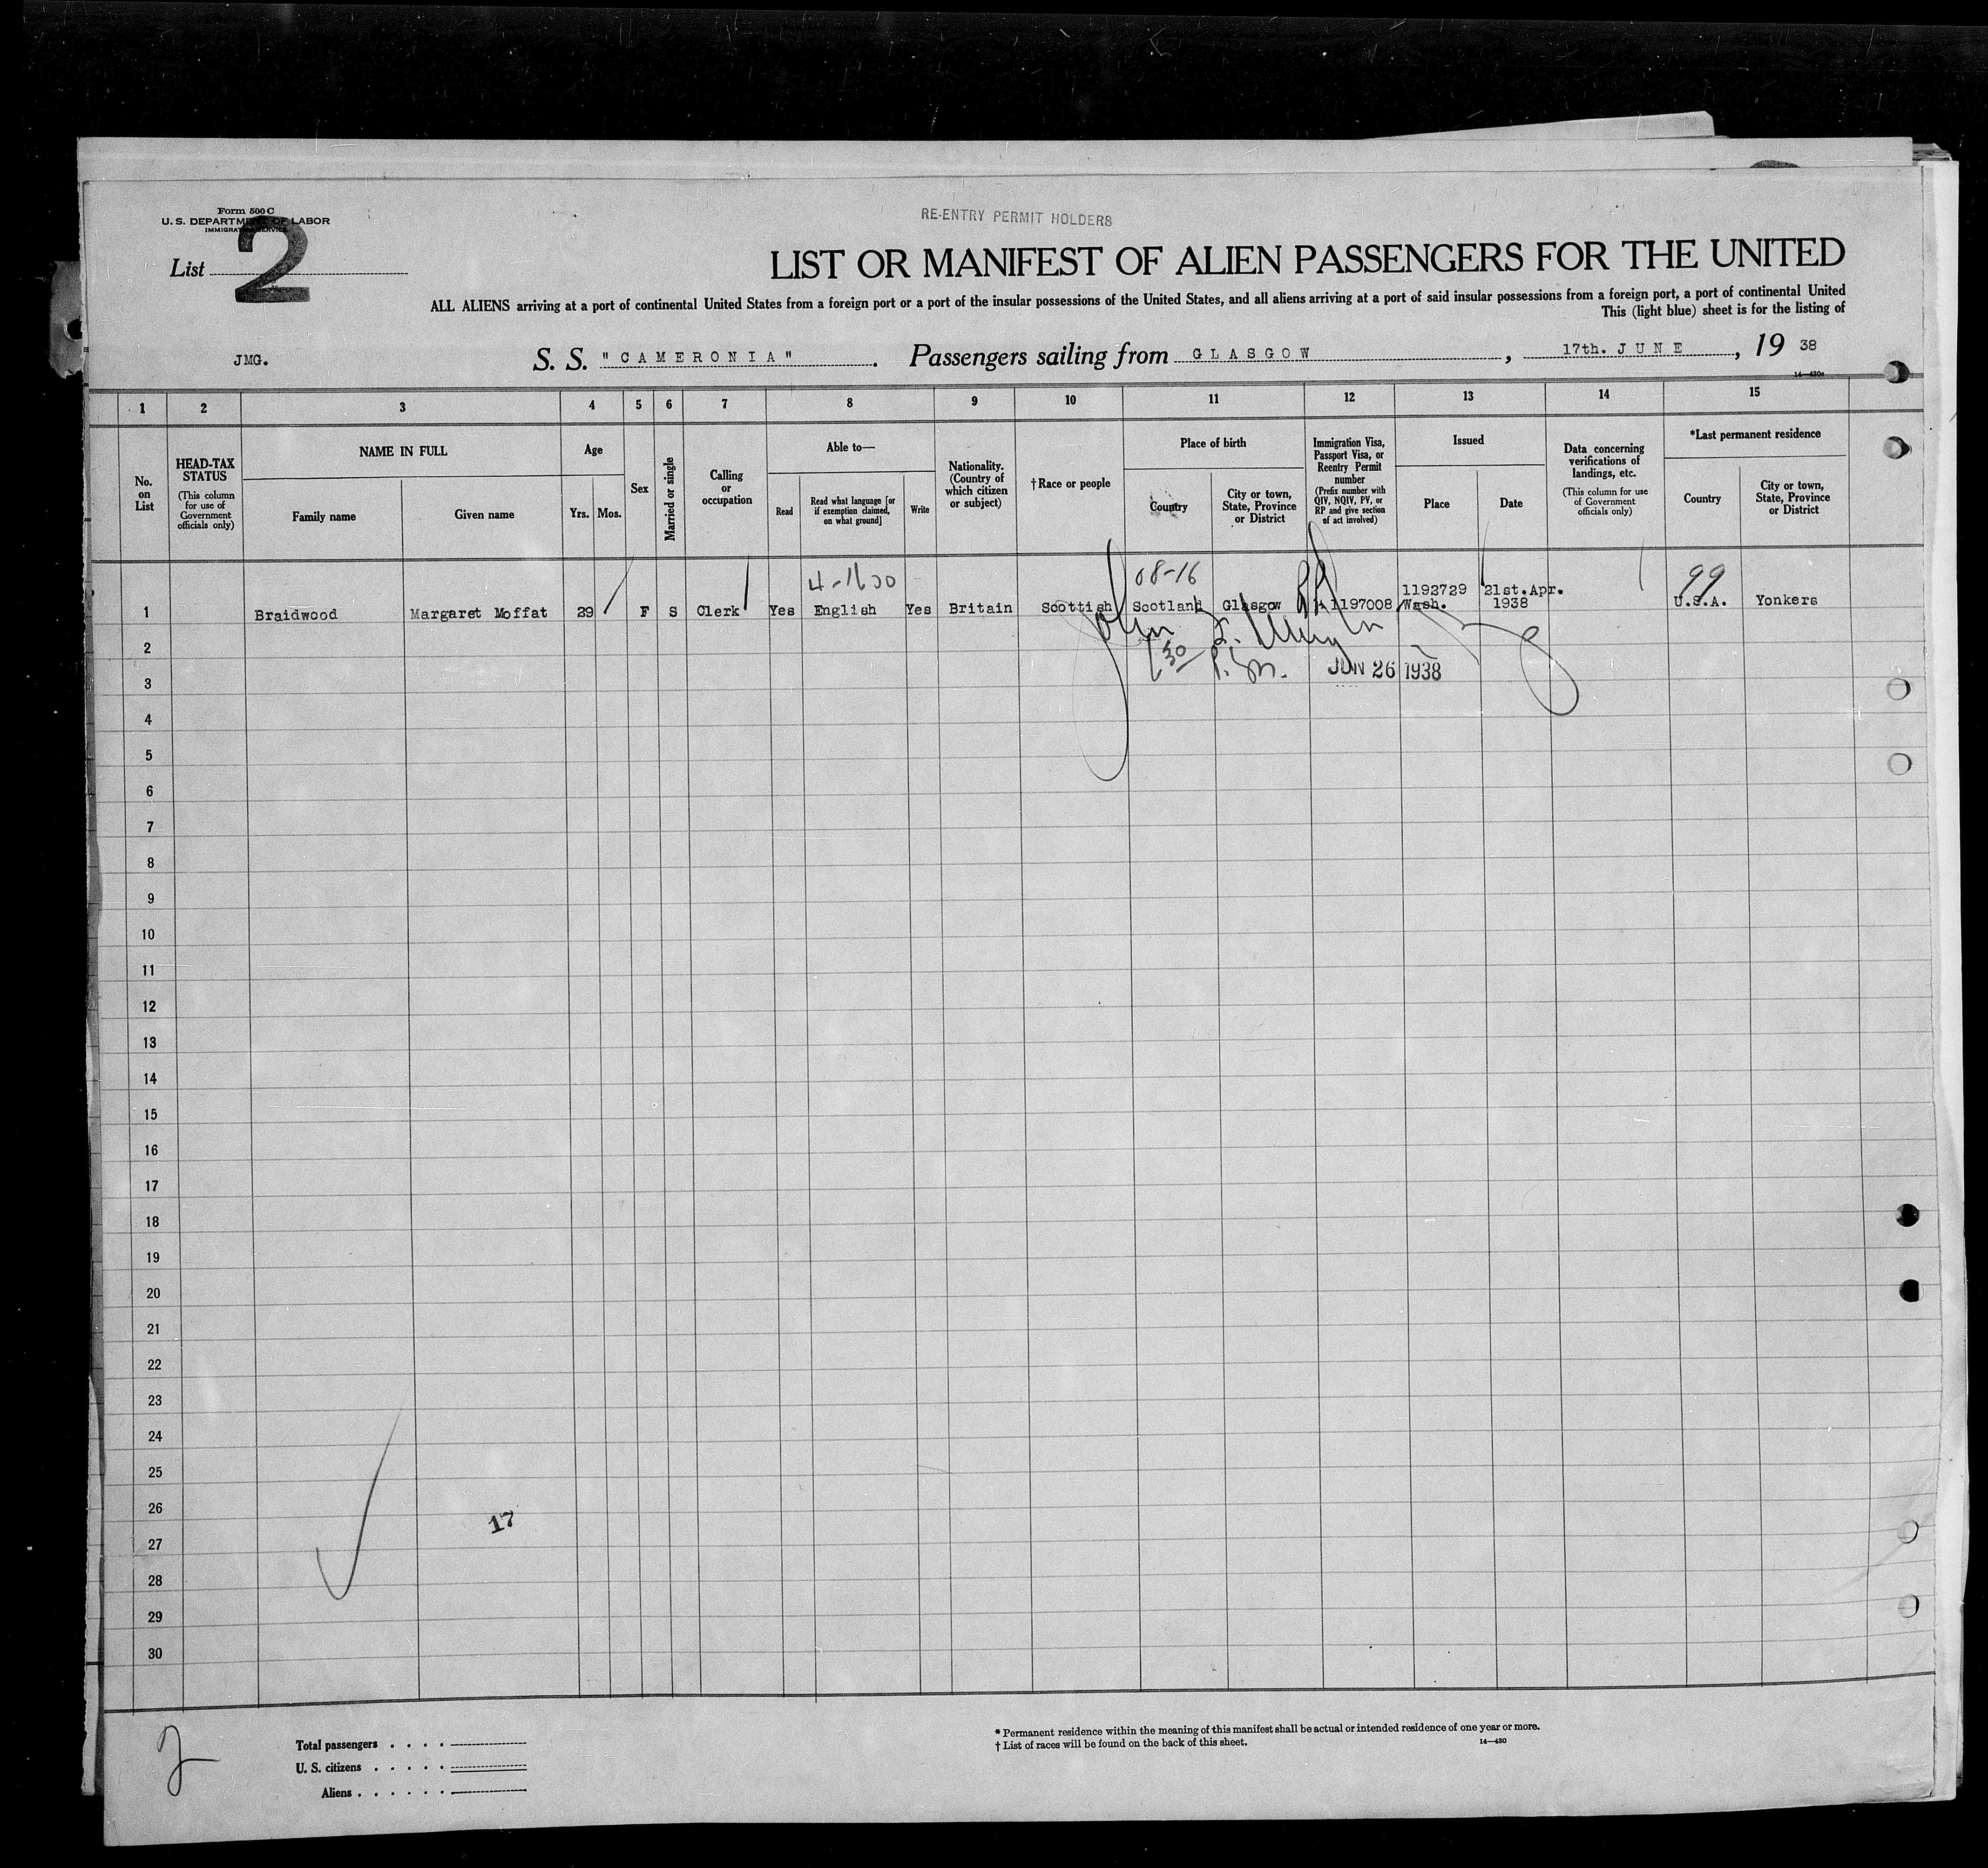 Form 500 C
U. S. DEPARTMENT OF LABOR
IMMIGRATION SERVICE
RE-ENTRY PERMIT HOLDERS
List 2
LIST OR MANIFEST OF ALIEN PASSENGERS FOR THE UNITED
ALL ALIENS arriving at a port of continental United States from a foreign port or a port of the insular possessions of the United States, and all aliens arriving at a port of said insular possessions from a foreign port, a port of continental United
This (light blue) sheet is for the listing of
JMG.
S. S. "CAMERONIA". Passengers sailing from GLASGOW, 17th. JUNE, 19 38
14—430c
1 2 3 4 5 6 7 8 9 10 11 12 13 14 15
No. on List
HEAD-TAX STATUS (This column for use of Government officials only)
NAME IN FULL
Family name
Given name
Age
Yrs. Mos.
Sex
Married or single
Calling or occupation
Able to—
Read
Read what language [or if exemption claimed, on what ground]
Write
Nationality. (Country of which citizen or subject)
†Race or people
Place of birth
Country
City or town, State, Province or District
Immigration Visa, Passport Visa, or Reentry Permit number (Prefix number with QIV, NQIV, PV, or RP and give section of act involved)
Issued
Place
Date
Data concerning verifications of landings, etc. (This column for use of Government officials only)
*Last permanent residence
Country
City or town, State, Province or District
4-1600 08-16 99
1192729 21st.Apr.
1 Braidwood Margaret Moffat 29 F S Clerk Yes English Yes Britain Scottish Scotland Glasgow 1197008 Wash. 1938 U.S.A. Yonkers
John
30 P.M. JUN 26 1938
2
3
4
5
6
7
8
9
10
11
12
13
14
15
16
17
18
19
20
21
22
23
24
25
26
17
27
28
29
30
2
Total passengers
U. S. citizens
Aliens
* Permanent residence within the meaning of this manifest shall be actual or intended residence of one year or more.
† List of races will be found on the back of this sheet.
14—430